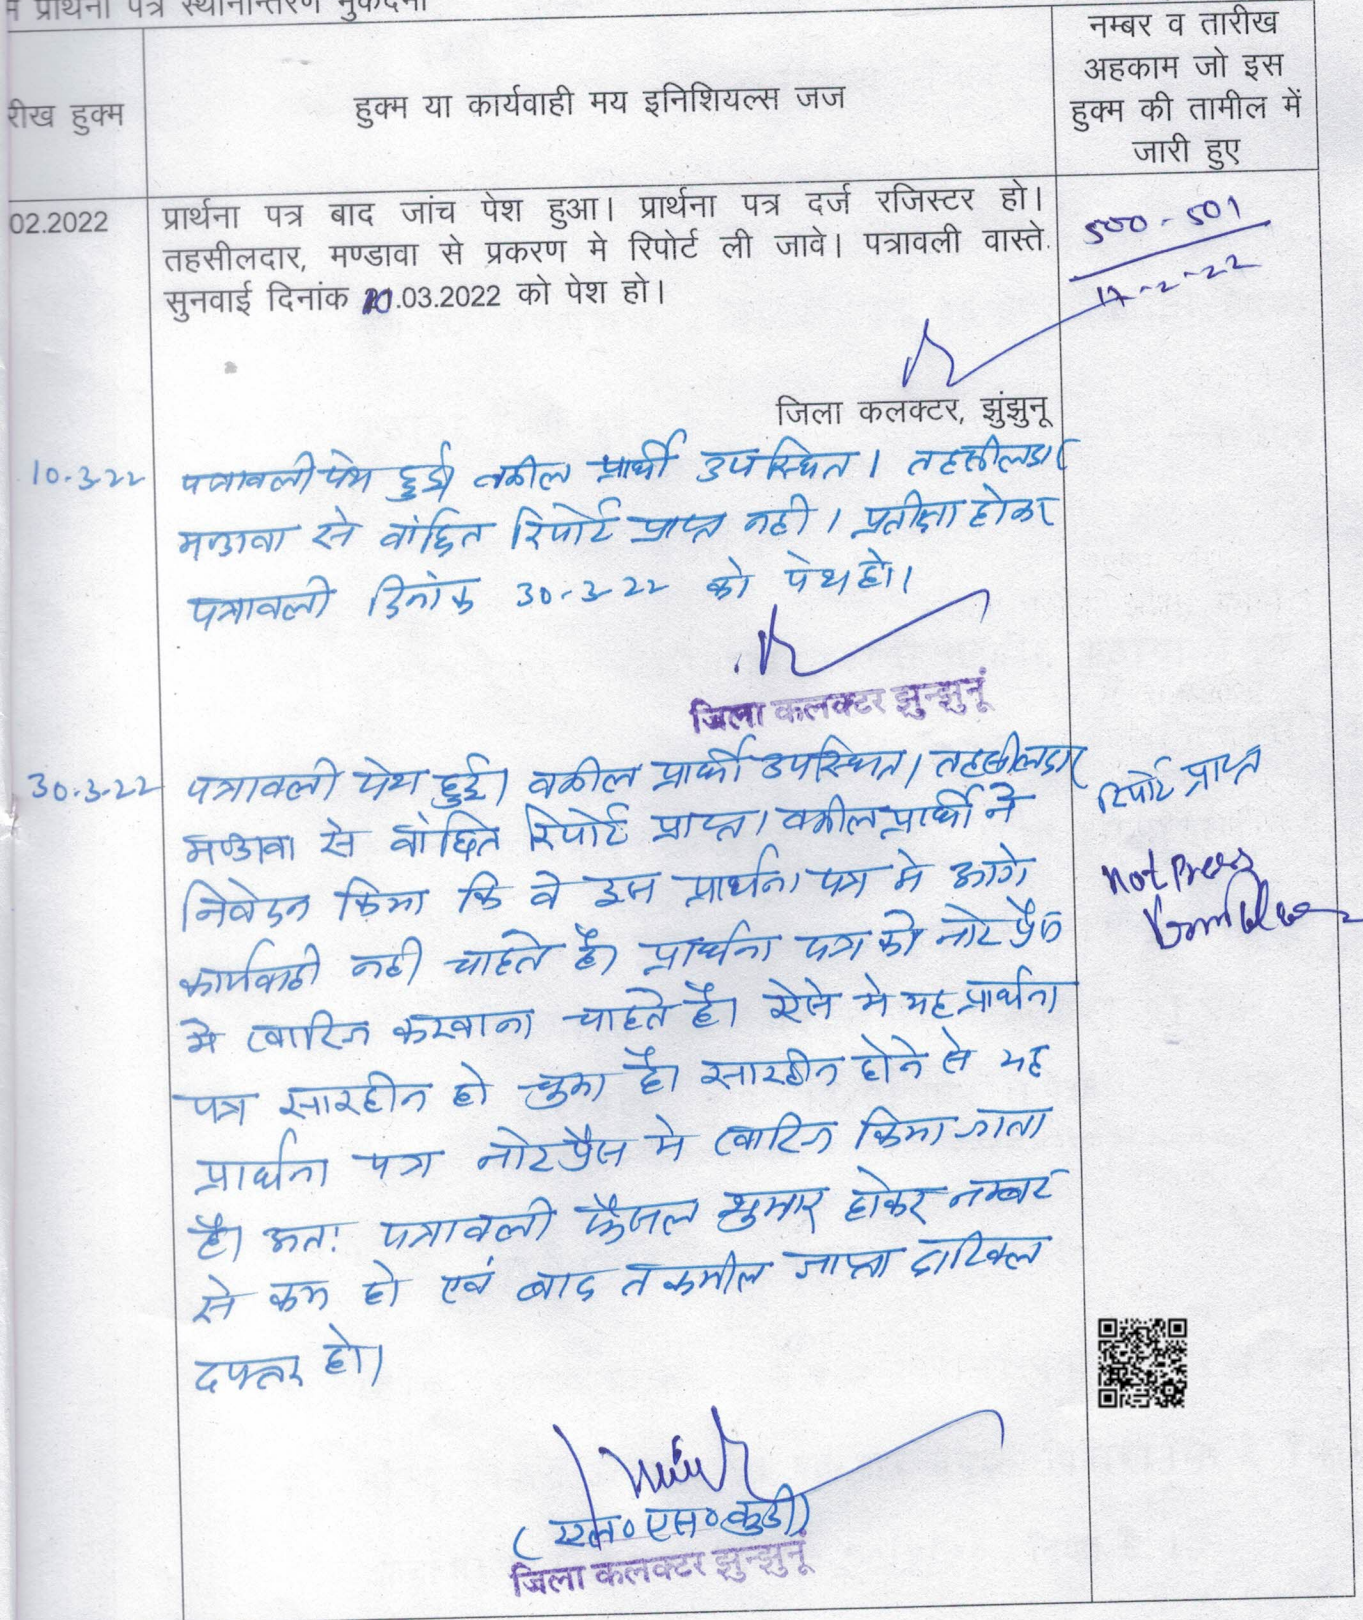 प्रार्थना पत्र स्थानान्तरण मुकदमा
रीख हुक्म
हुक्म या कार्यवाही मय इनिशियल्स जज
नम्बर व तारीख
अहकाम जो इस
हुक्म की तामील में
जारी हुए
02.2022
प्रार्थना पत्र बाद जांच पेश हुआ। प्रार्थना पत्र दर्ज रजिस्टर हो।
तहसीलदार, मण्डावा से प्रकरण मे रिपोर्ट ली जावे। पत्रावली वास्ते
सुनवाई दिनांक 10.03.2022 को पेश हो।
500-501
17-2-22
जिला कलक्टर, झुंझुनू
10-3-22
पत्रावली पेश हुई। वकील प्रार्थी उपस्थित। तहसीलदार
मण्डावा से वांछित रिपोर्ट प्राप्त नही। प्रतीक्षा होकर
पत्रावली दिनांक 30-3-22 को पेश हो।
जिला कलक्टर झुन्झुनूं
30-3-22
पत्रावली पेश हुई। वकील प्रार्थी उपस्थित। तहसीलदार
मण्डावा से वांछित रिपोर्ट प्राप्त। वकील प्रार्थी ने
निवेदन किया कि वे इस प्रार्थना पत्र मे आगे
कार्यवाही नही चाहते है। प्रार्थना पत्र को नोट प्रैस
मे खारिज करवाना चाहते है। ऐसे मे यह प्रार्थना
पत्र सारहीन हो चुका है। सारहीन होने से यह
प्रार्थना पत्र नोटप्रैस मे खारिज किया जाता
है। अतः पत्रावली फैसल शुमार होकर नम्बर
से कम हो एवं बाद तकमील जाप्ता दाखिल
दफ्तर हो।
रिपोर्ट प्राप्त
Not Press
(एल० एस० कुडी)
जिला कलक्टर झुन्झुनूं